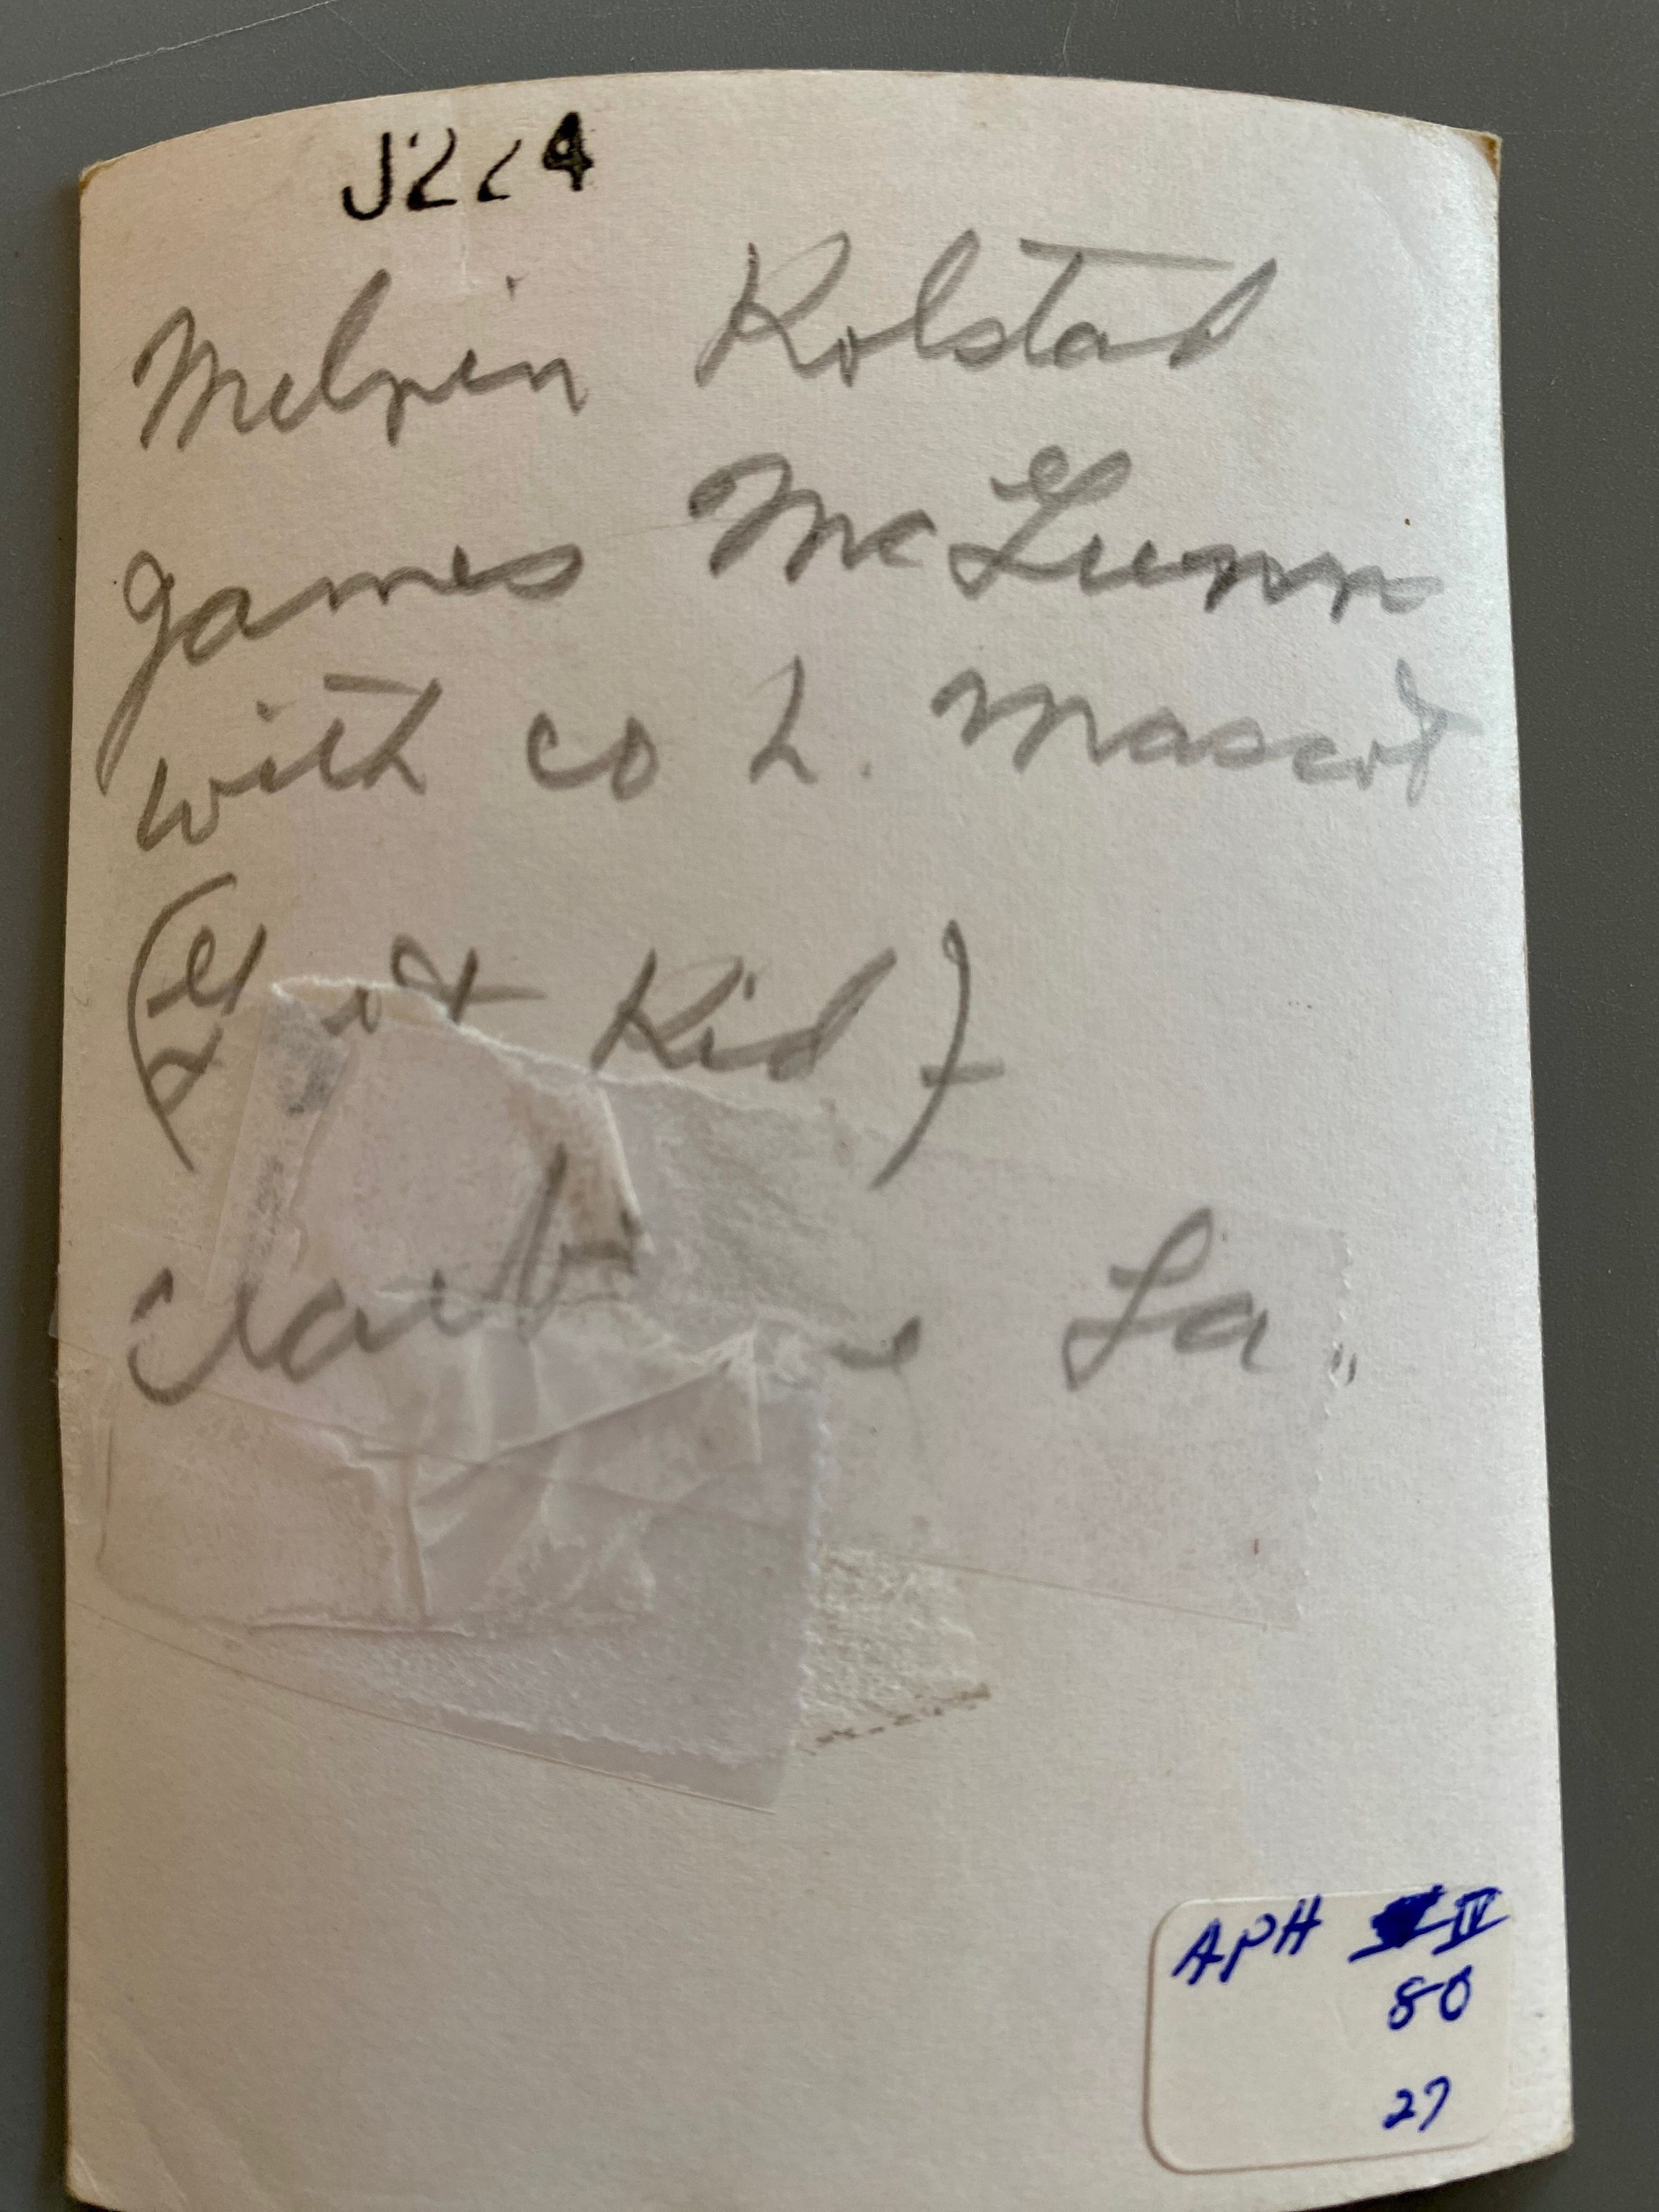 J224
Melvin Rolstad
James McLunn
with co L. Mascot
Kid)
La.
APH IV
80
27